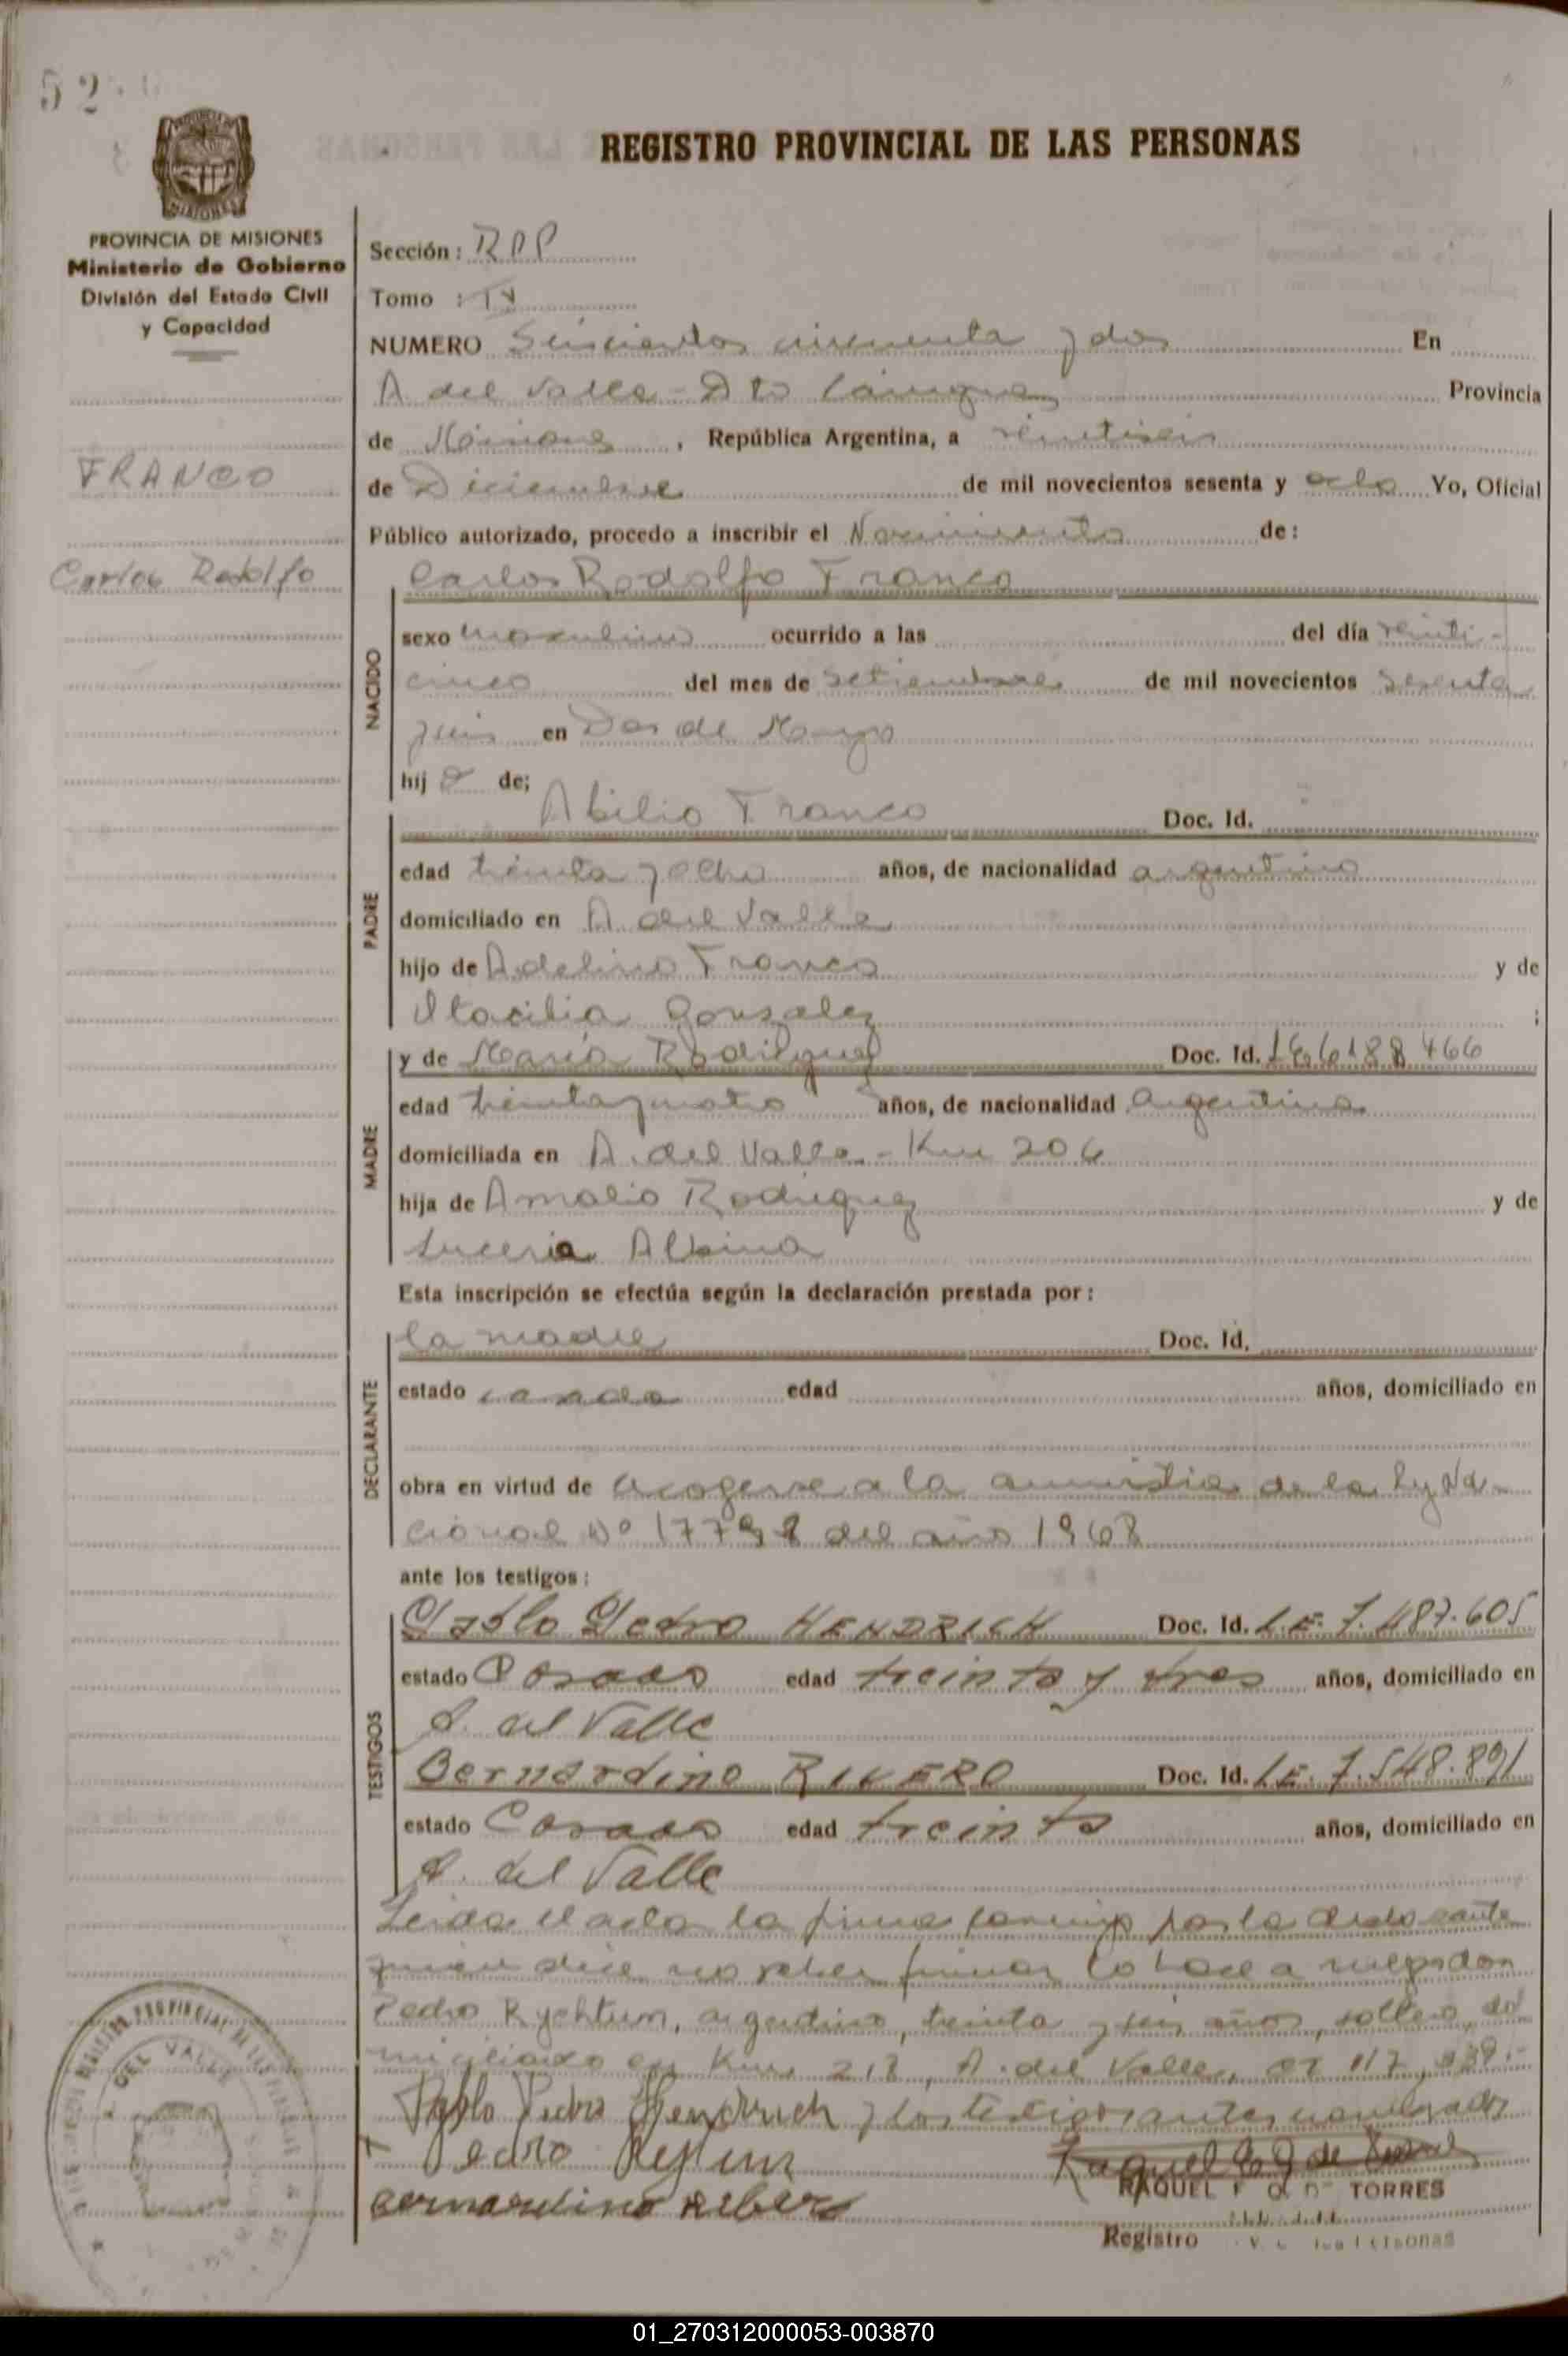 52
REGISTRO PROVINCIAL DE LAS PERSONAS
PROVINCIA DE MISIONES
Ministerio de Gobierno
División del Estado Civil
y Capacidad
FRANCO
Carlos Rodolfo
Sección:
Tomo :
NUMERO Seiscientos cincuenta y dos En
A. del Valle - Dto Cainguas Provincia
de Misiones, República Argentina, a veintiseis
de Diciembre de mil novecientos sesenta y ocho Yo, Oficial
Público autorizado, procedo a inscribir el Nacimiento de:
Carlos Rodolfo Franco
NACIDO
sexo masculino ocurrido a las del día veinti-
cinco del mes de Setiembre de mil novecientos sesenta
y seis en Dos de Mayo
hijo de;
PADRE
Abilio Franco Doc. Id.
edad treinta y ocho años, de nacionalidad argentino
domiciliado en A. del Valle
hijo de Adelino Franco y de
Otacilia Gonzalez ;
MADRE
y de Maria Rodriguez Doc. Id.
edad treinta y cuatro años, de nacionalidad Argentina
domiciliada en A. del Valle - Km 206
hija de Amalio Rodriguez y de
Albina
Esta inscripción se efectúa según la declaración prestada por:
DECLARANTE
la madre Doc. Id.
estado casada edad años, domiciliado en
obra en virtud de acogerse a la amnistia de la Ley Na-
cional Nº del año 1968
ante los testigos:
TESTIGOS
Pablo Pedro HENDRICH Doc. Id. L.E. 7.487.605
estado Casado edad treinta y tres años, domiciliado en
A. del Valle
Bernardino RIVERO Doc. Id. L.E. 7.548.891
estado Casado edad treinta años, domiciliado en
A. del Valle
Leida el acta la firma conmigo por la declarante
quien dice no saber firmar lo hace a ruego don
Pedro Rychtum, argentino, treinta y seis años, soltero, do
miciliado en Km 218, A. del Valle,
Pablo Pedro Hendrich y los testigos antes nombrados
Pedro
Bernardino Ribero
RAQUEL TORRES
Registro Personas
DEL VALLE
01_270312000053-003870